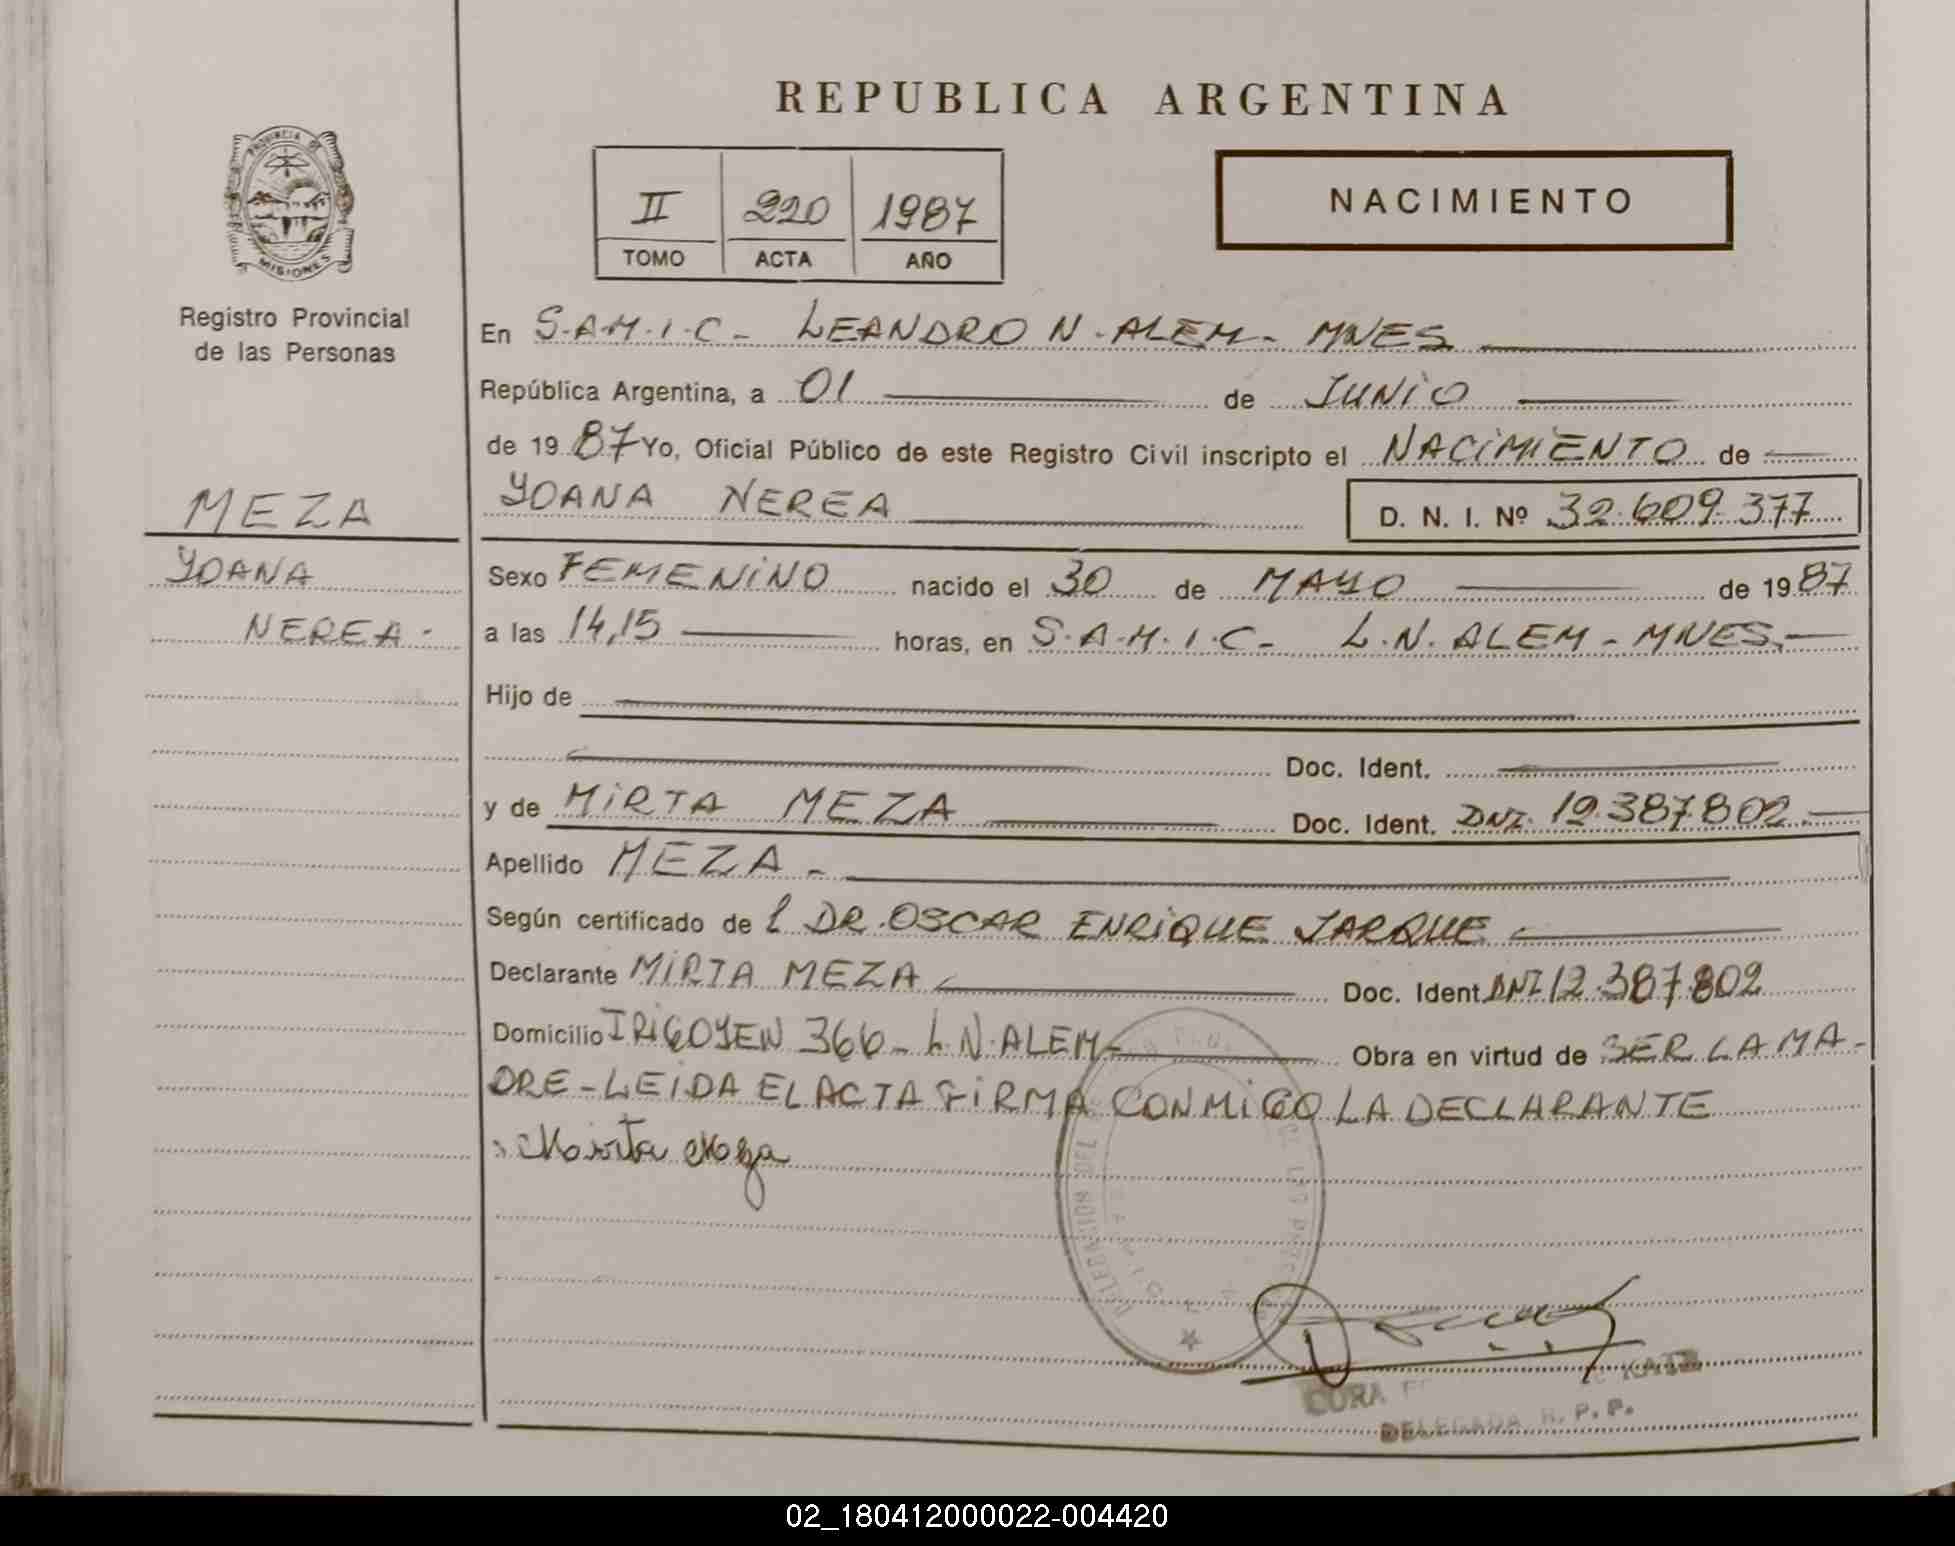 REPUBLICA ARGENTINA
PROVINCIA DE
MISIONES
Registro Provincial
de las Personas
II 220 1987
TOMO ACTA AÑO
NACIMIENTO
En S.A.M.I.C- LEANDRO N. ALEM- MNES
República Argentina, a 01 de JUNIO
de 1987 Yo, Oficial Público de este Registro Civil inscripto el NACIMIENTO de
MEZA
YOANA NEREA D. N. I. Nº 32.609.377
YOANA
NEREA.
Sexo FEMENINO nacido el 30 de MAYO de 1987
a las 14,15 horas, en S.A.M.I.C- L.N. ALEM - MNES.
Hijo de
Doc. Ident.
y de MIRTA MEZA Doc. Ident. DNI. 12.387.802.
Apellido MEZA.-
Según certificado de l DR. OSCAR ENRIQUE JARQUE
Declarante MIRTA MEZA Doc. Ident. DNI 12.387.802
Domicilio IRIGOYEN 366- L.N. ALEM- Obra en virtud de SER LA MA-
DRE - LEIDA EL ACTA FIRMA CONMIGO LA DECLARANTE
: Mirta Meza
DELEGACION DEL
CURA KATZ
DELEGADA R. P. P.
02_180412000022-004420